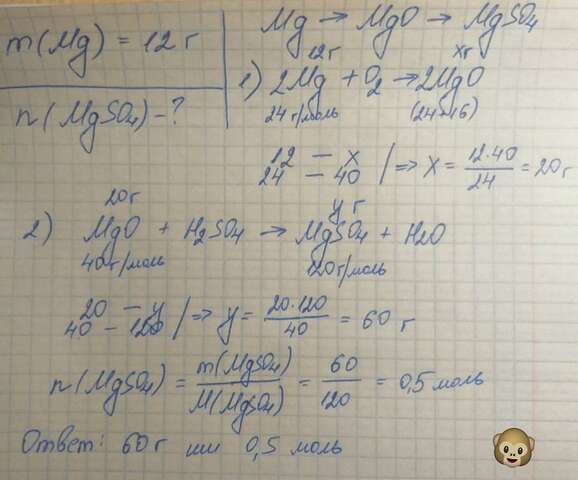 m(Mg) = 12 г
n(MgSO₄) - ?
Mg → MgO → MgSO₄
12г xг
1) 2Mg + O₂ → 2MgO
24 г/моль (24+16)
12 — x
24 — 40 | => x = 12·40 / 24 = 20 г
20 г y г
2) MgO + H₂SO₄ → MgSO₄ + H₂O
40 г/моль 120 г/моль
20 — y
40 — 120 | => y = 20·120 / 40 = 60 г
n(MgSO₄) = m(MgSO₄) / M(MgSO₄) = 60 / 120 = 0,5 моль
Ответ: 60 г или 0,5 моль